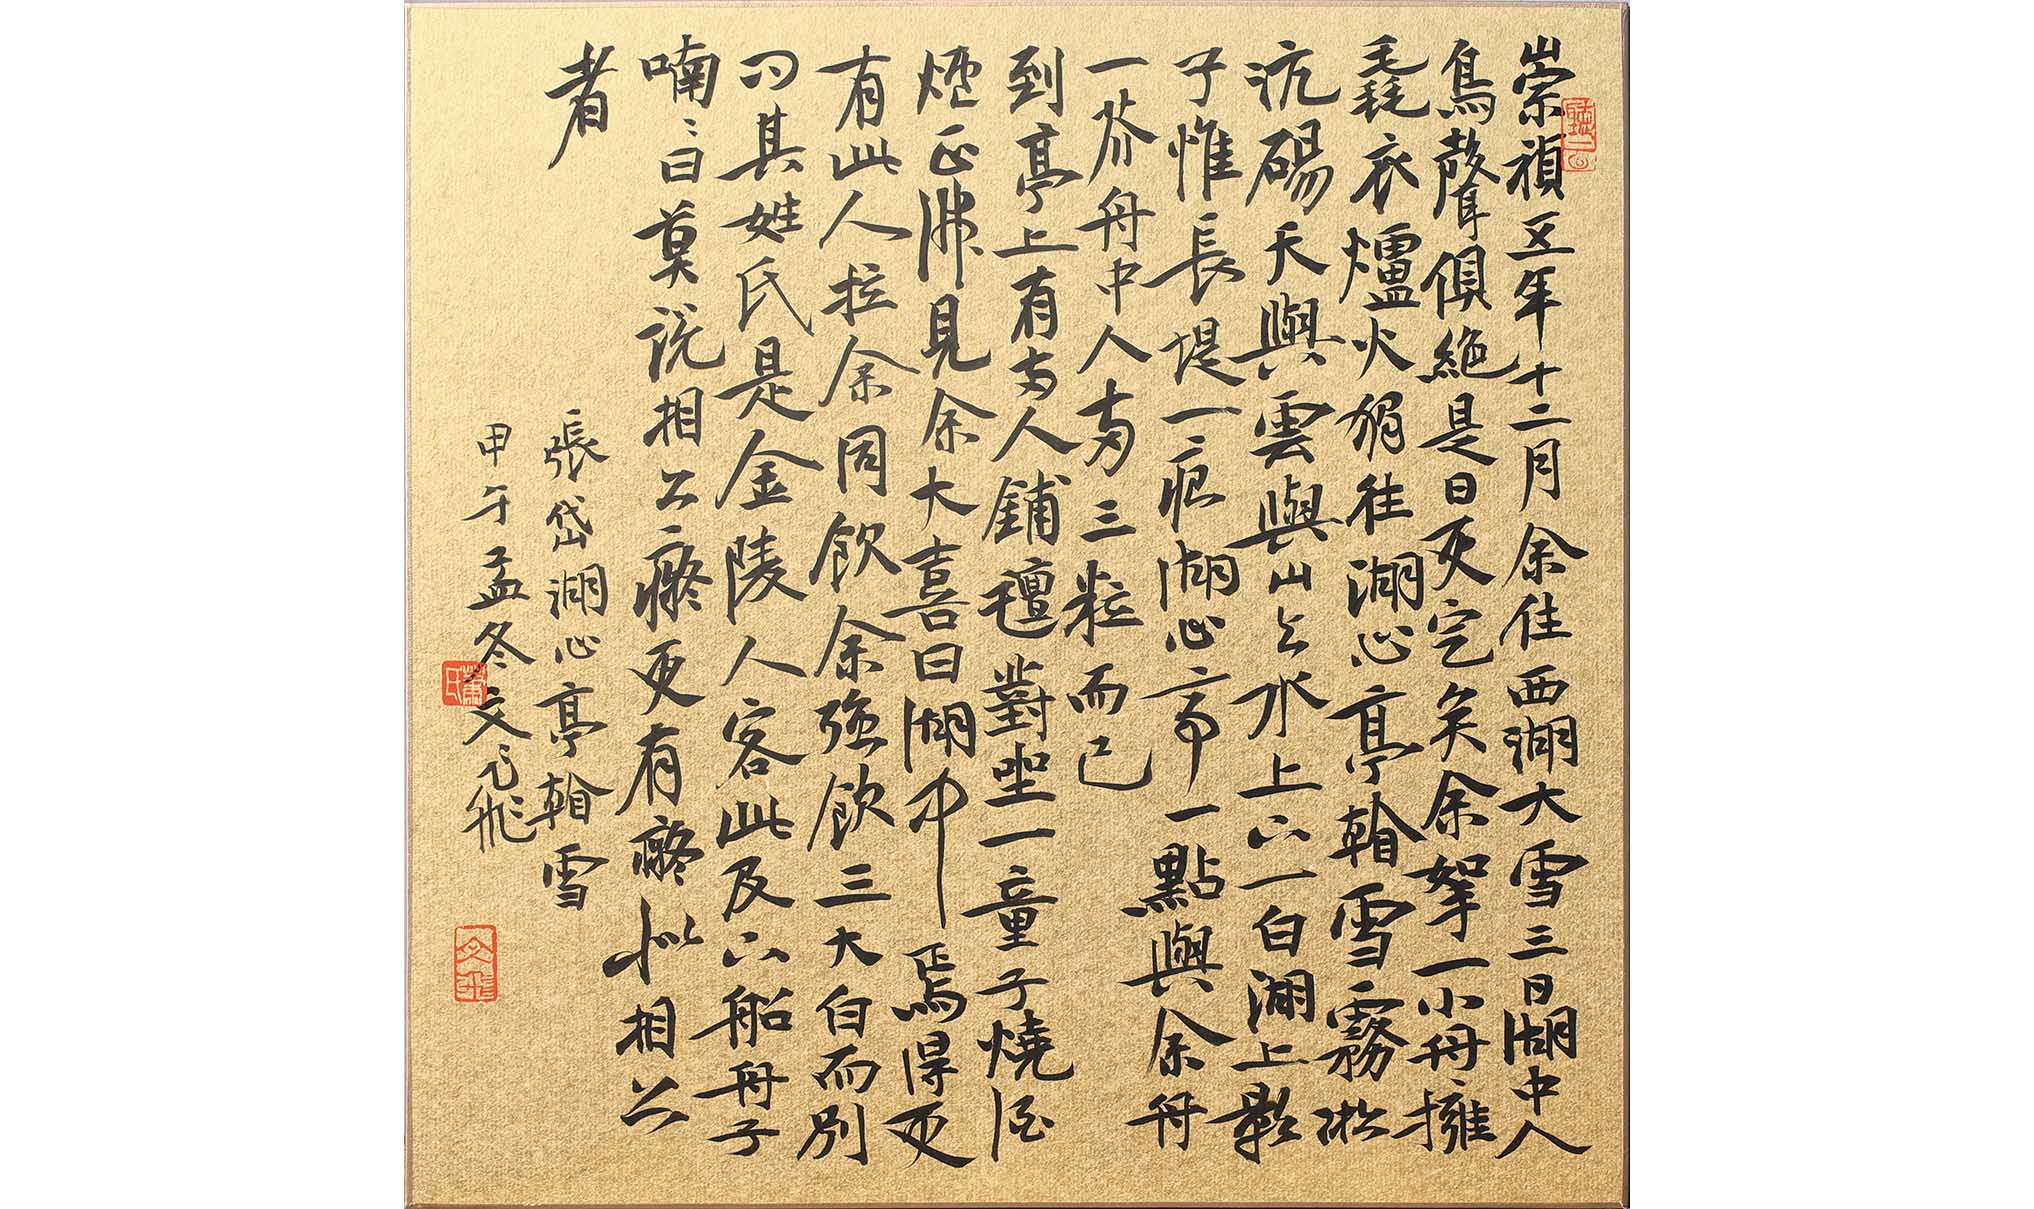 崇禎五年十二月余住西湖大雪三日湖中人
鳥聲俱絕是日更定矣余拏一小舟擁
毳衣爐火獨往湖心亭看雪霧凇
沆碭天與雲與山与水上下一白湖上影
子惟長堤一痕湖心亭一點與余舟
一芥舟中人兩三粒而已
到亭上有兩人鋪氈對坐一童子燒酒
爐正沸見余大喜曰湖中焉得更
有此人拉余同飲余強飲三大白而別
問其姓氏是金陵人客此及下船舟子
喃〻曰莫說相公癡更有癡似相公
者
張岱湖心亭看雪
甲午孟冬文飛
蕭氏
文飛